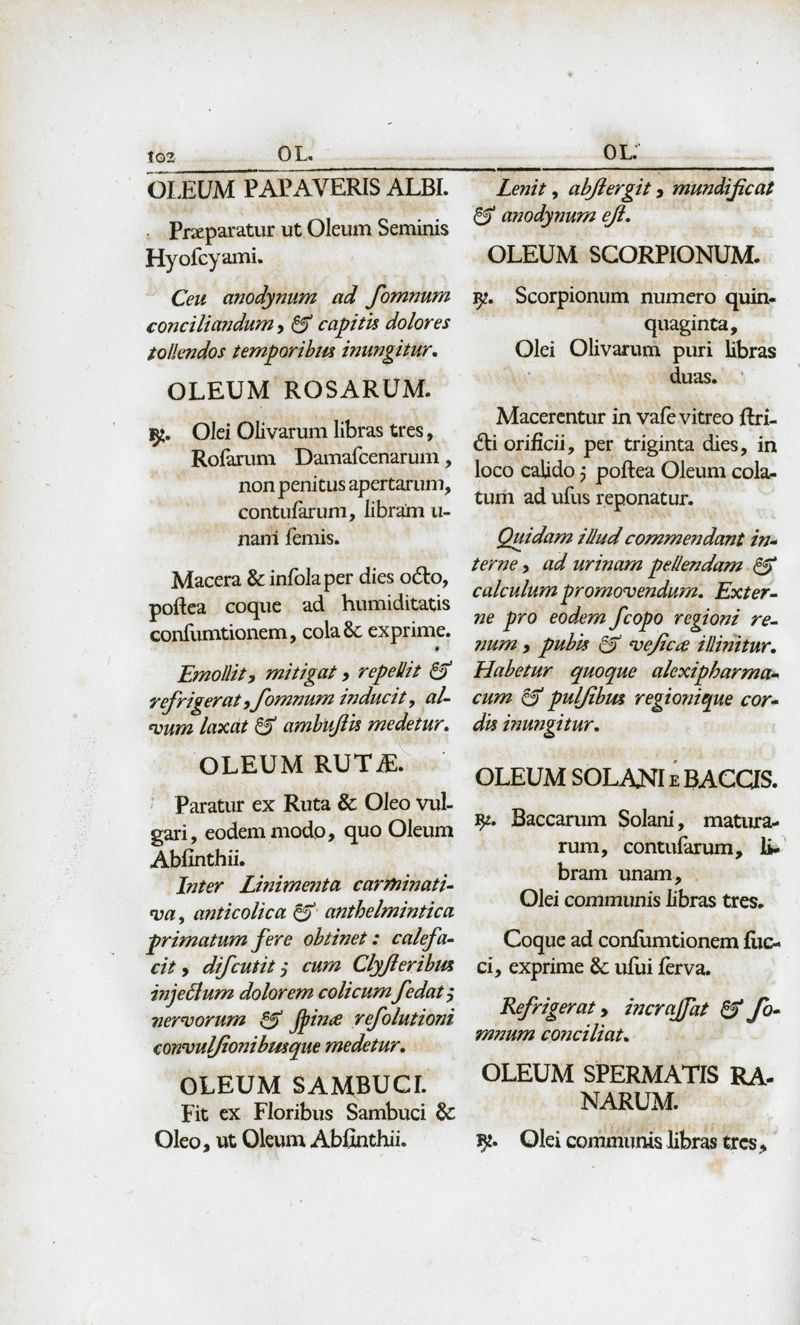 102 OL. OL.
OLEUM PAPAVERIS ALBI.
Præparatur ut Oleum Seminis
Hyoſcyami.
Ceu anodynum ad ſomnum
conciliandum, & capitis dolores
tollendos temporibus inungitur.
OLEUM ROSARUM.
℞. Olei Olivarum libras tres,
Roſarum Damaſcenarum,
non penitus apertarum,
contuſarum, libram u-
nam ſemis.
Macera & inſola per dies octo,
poſtea coque ad humiditatis
conſumtionem, cola & exprime.
Emollit, mitigat, repellit &
refrigerat, ſomnum inducit, al-
vum laxat & ambuſtis medetur.
OLEUM RUTÆ.
Paratur ex Ruta & Oleo vul-
gari, eodem modo, quo Oleum
Abſinthii.
Inter Linimenta carminati-
va, anticolica & anthelmintica
primatum fere obtinet: calefa-
cit, diſcutit; cum Clyſteribus
injectum dolorem colicum ſedat;
nervorum & ſpinæ reſolutioni
convulſionibusque medetur.
OLEUM SAMBUCI.
Fit ex Floribus Sambuci &
Oleo, ut Oleum Abſinthii.
Lenit, abſtergit, mundificat
& anodynum eſt.
OLEUM SCORPIONUM.
℞. Scorpionum numero quin-
quaginta,
Olei Olivarum puri libras
duas.
Macerentur in vaſe vitreo ſtri-
cti orificii, per triginta dies, in
loco calido; poſtea Oleum cola-
tum ad uſus reponatur.
Quidam illud commendant in-
terne, ad urinam pellendam &
calculum promovendum. Exter-
ne pro eodem ſcopo regioni re-
num, pubis & veſicæ illinitur.
Habetur quoque alexipharma-
cum & pulſibus regionique cor-
dis inungitur.
OLEUM SOLANI È BACCIS.
℞. Baccarum Solani, matura-
rum, contuſarum, li-
bram unam,
Olei communis libras tres.
Coque ad conſumtionem ſuc-
ci, exprime & uſui ſerva.
Refrigerat, incraſſat & ſo-
mnum conciliat.
OLEUM SPERMATIS RA-
NARUM.
℞. Olei communis libras tres,